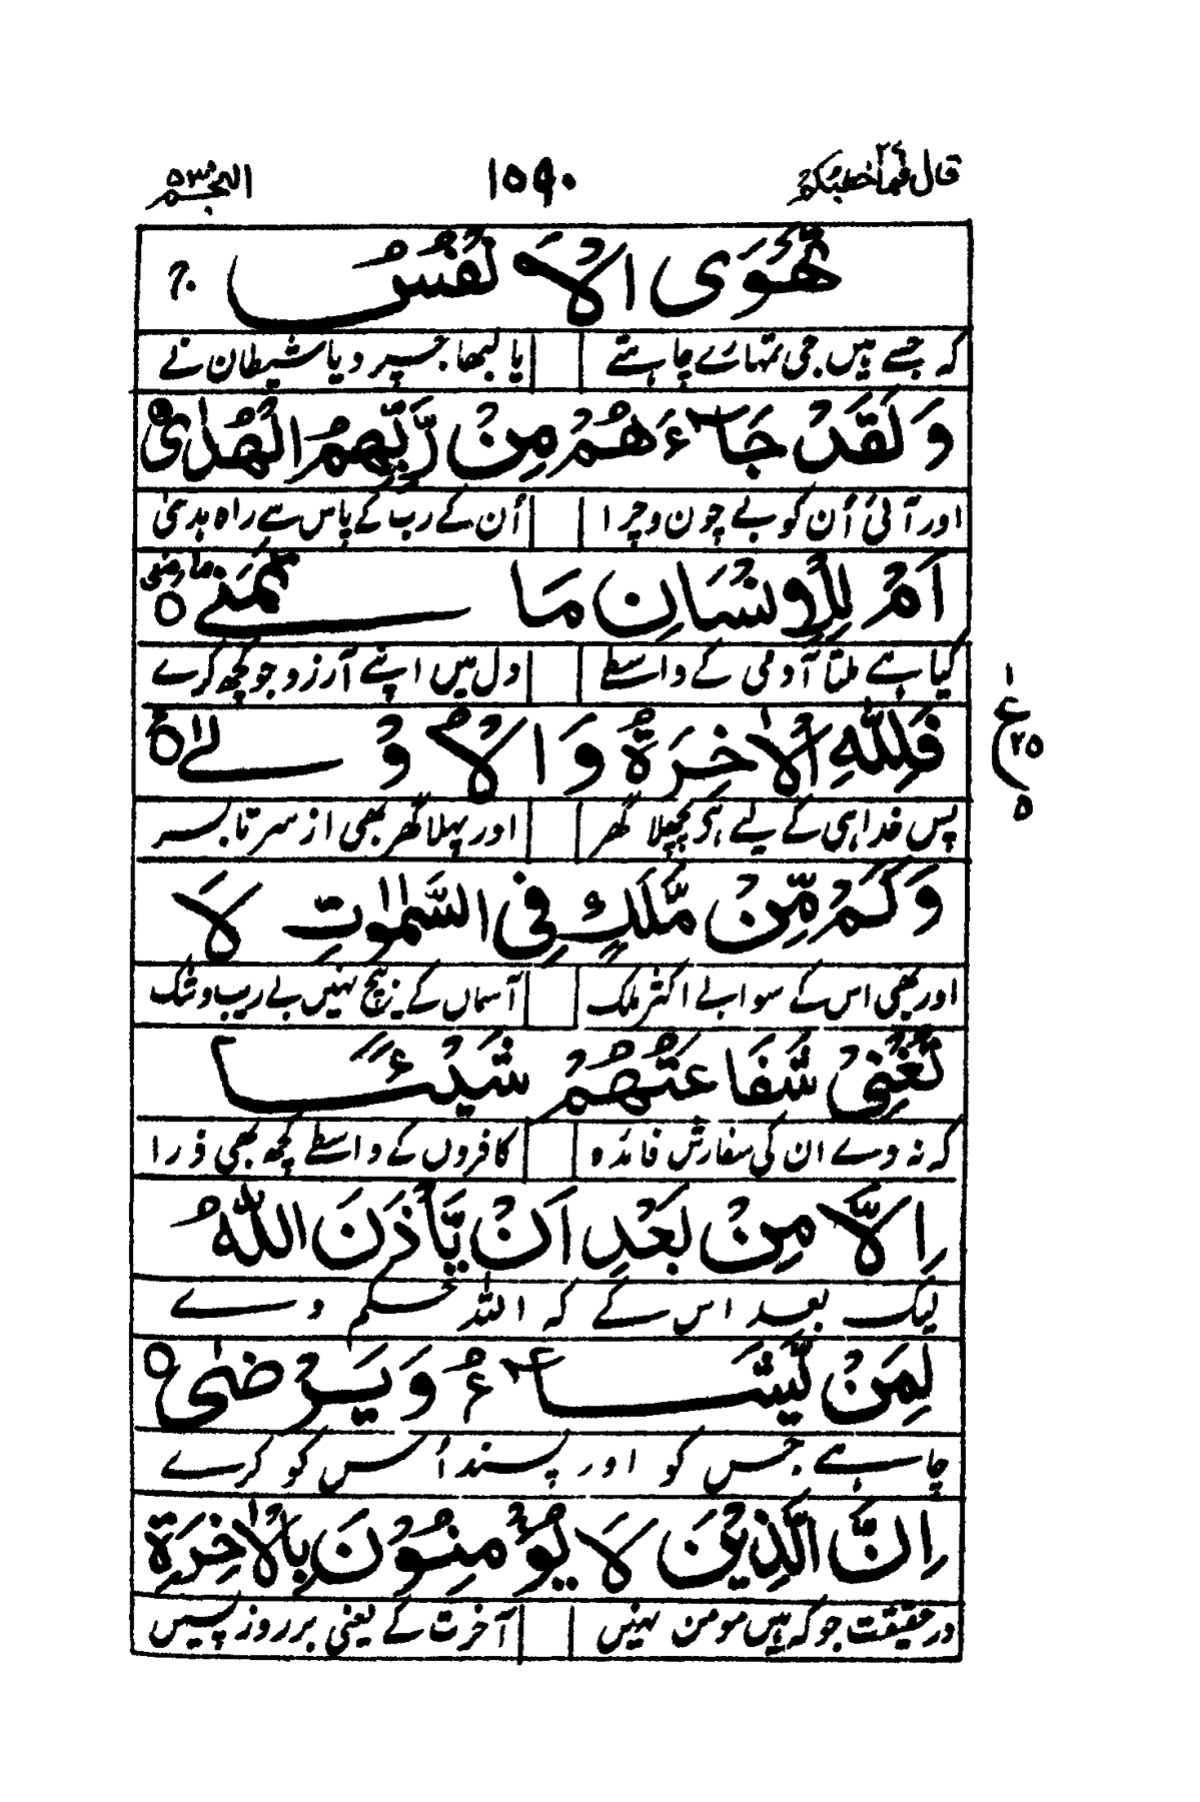 قال فما خطبکم ۲۷ ۱۵۹۰ النجم ۵۳
تَهْوَى الْاَنْفُسُ ج
کہ جسے ہیں جی تمہارے چاہتے یا لبھا جسپر دیا شیطان نے
وَلَقَدْ جَآءَهُمْ مِنْ رَّبِّهِمُ الْهُدٰى
اور آئی اُن کو بے چون و چرا اُن کے رب کے پاس سے راہ ہدیٰ
اَمْ لِلْاِنْسَانِ مَا تَمَنّٰى
کیا ہے ملتا آدمی کے واسطے دل میں اپنے آرزو جو کچھ کرے
فَلِلّٰهِ الْاٰخِرَةُ وَالْاُوْلٰى
پس خدا ہی کے لیے ہی پچھلا گھر اور پہلا گھر بھی از سر تا بسر
ع ۱ ۲۵ ۵
وَكَمْ مِّنْ مَّلَكٍ فِى السَّمٰوٰتِ لَا
اور بھی اس کے سوا بے اکثر ملک آسماں کے بیچ نہیں بے ریب و شک
تُغْنِىْ شَفَاعَتُهُمْ شَيْـئًا
کہ نہ دے ان کی سفارش فائدہ کافروں کے واسطے کچھ بھی ذرا
اِلَّا مِنْ بَعْدِ اَنْ يَّاْذَنَ اللّٰهُ
لیک بعد اس کے کہ اللہ حکم دے
لِمَنْ يَّشَآءُ وَيَرْضٰى
چاہے جس کو اور پسند اُس کو کرے
اِنَّ الَّذِيْنَ لَا يُؤْمِنُوْنَ بِالْاٰخِرَةِ
در حقیقت جو کہ ہیں مومن نہیں آخرت کے یعنی بر روز پسیں